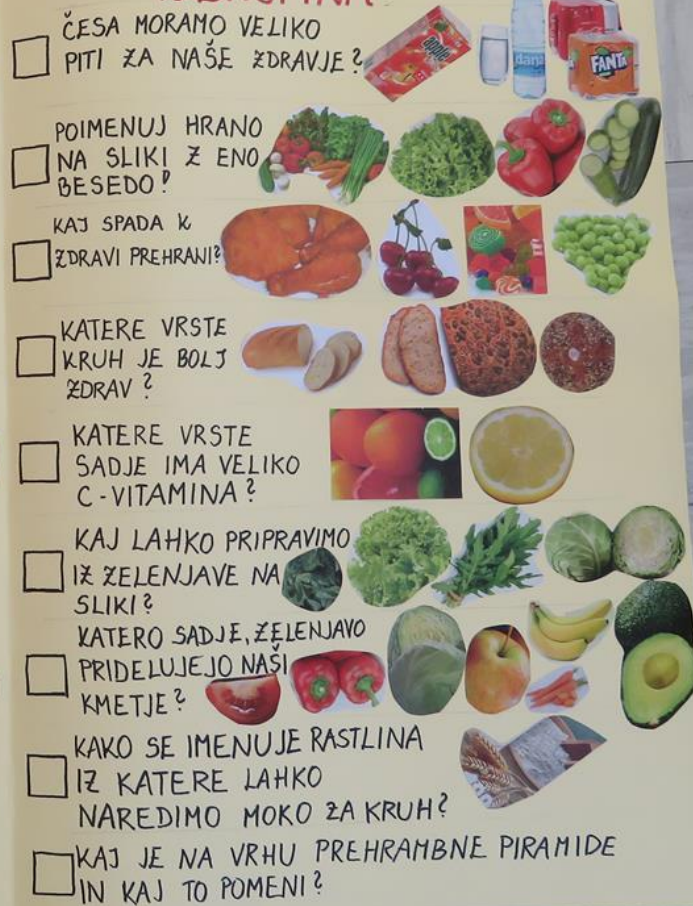 ČESA MORAMO VELIKO
PITI ZA NAŠE ZDRAVJE?
dana
FANTA
POIMENUJ HRANO
NA SLIKI Z ENO
BESEDO!
KAJ SPADA K
ZDRAVI PREHRANI?
KATERE VRSTE
KRUH JE BOLJ
ZDRAV?
KATERE VRSTE
SADJE IMA VELIKO
C-VITAMINA?
KAJ LAHKO PRIPRAVIMO
IZ ZELENJAVE NA
SLIKI?
KATERO SADJE, ZELENJAVO
PRIDELUJEJO NAŠI
KMETJE?
KAKO SE IMENUJE RASTLINA
IZ KATERE LAHKO
NAREDIMO MOKO ZA KRUH?
KAJ JE NA VRHU PREHRAMBNE PIRAMIDE
IN KAJ TO POMENI?